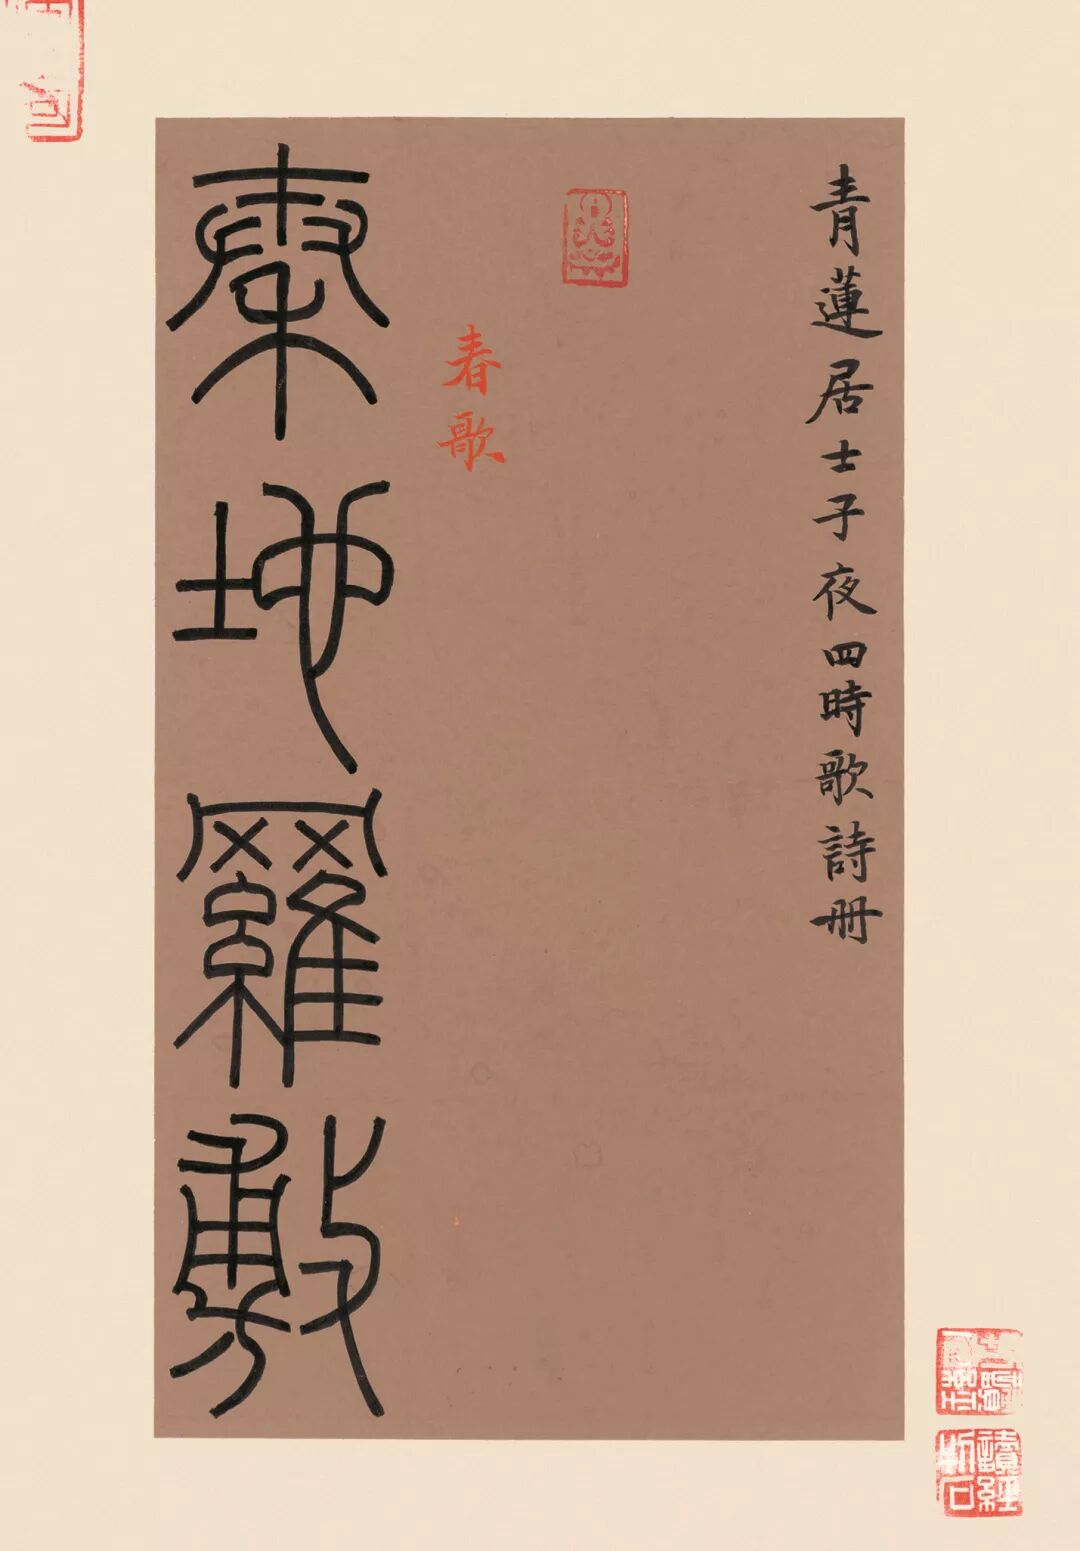 青蓮居士子夜四時歌詩册
春歌
秦地羅敷